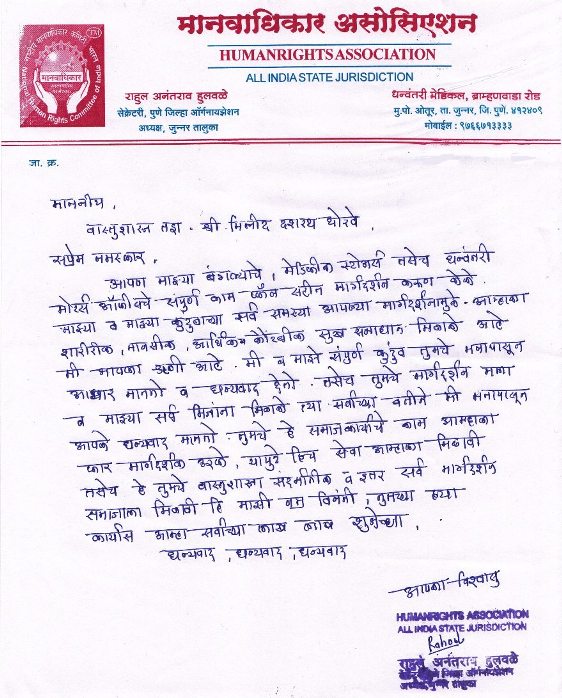 मानवाधिकार असोसिएशन
HUMANRIGHTS ASSOCIATION
ALL INDIA STATE JURISDICTION
TM
मानवाधिकार
Human Rights Committee of India
राहुल अनंतराव हुलवळे
सेक्रेटरी, पुणे जिल्हा ऑर्गनायझेशन
अध्यक्ष, जुन्नर तालुका
धन्वंतरी मेडिकल, ब्राम्हणवाडा रोड
मु.पो. ओतूर, ता. जुन्नर, जि. पुणे. ४१२४०९
मोबाईल : ९७६६७१३३३३
जा. क्र.
माननीय,
वास्तुशास्त्र तज्ञ - श्री. मिलींद दशरथ थोरवे,
सप्रेम नमस्कार,
आपण माझ्या बंगल्याचे, मेडिकील स्टोअर्स तसेच धन्वंतरी
मोटर्स ऑफीसचे संपुर्ण काम प्लॅन सहीत मार्गदर्शन करुण केले.
माझ्या व माझ्या कुटुंबाच्या सर्व समस्या आपल्या मार्गदर्शनामुळे - आम्हाला
शारीरीक, मानसीक, आर्थिक व कौटुंबीक सुख समाधान मिळाले आहे
मी आपला ऋणी आहे. मी व माझे संपुर्ण कुटुंब तुमचे मनापासून
आभार मानतो व धन्यवाद देतो. तसेच तुमचे मार्गदर्शन मला
व माझ्या सर्व मित्रांना मिळाले त्या सर्वांच्या वतीने मी मनापासून
आपले धन्यवाद मानतो. तुमचे हे समाजकार्याचे काम आम्हाला
फार मार्गदर्शक ठरले, यापुढे हिच सेवा आम्हाला मिळावी
तसेच हे तुमचे वास्तुशास्त्रा संदर्भातील व इतर सर्व मार्गदर्शन
समाजाला मिळावे हि माझी नम्र विनंती, तुमच्या ह्या
कार्यास आम्हा सर्वांच्या लाख लाख शुभेच्छा,
धन्यवाद, धन्यवाद, धन्यवाद
आपला विश्वासु
HUMANRIGHTS ASSOCIATION
ALL INDIA STATE JURISDICTION
Rahul
राहुल अनंतराव हुलवळे
सेक्रेटरी पुणे जिल्हा ऑर्गनायझेशन
अध्यक्ष जुन्नर तालुका